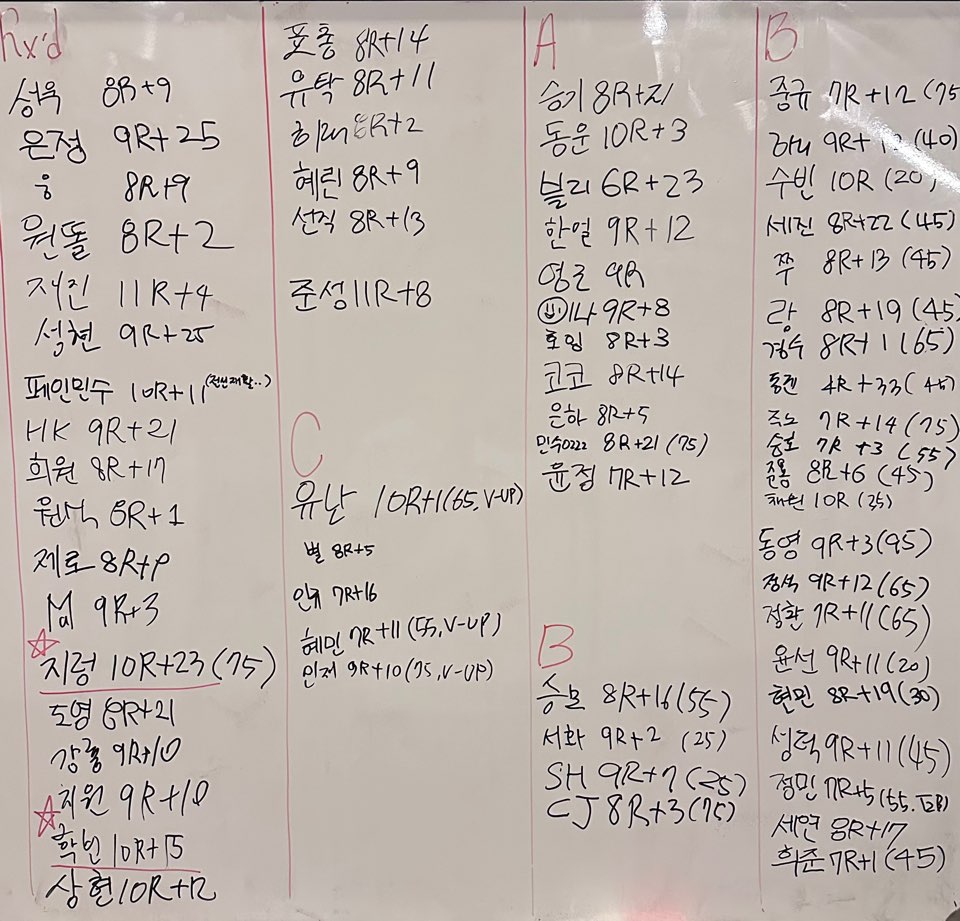 Rx'd
성욱 8R+9
은정 9R+25
웅 8R+9
원똘 8R+2
재진 11R+4
성현 9R+25
페인민수 10R+11
HK 9R+21
희원 8R+17
원석 8R+1
제로 8R+9
9R+3
지렁 10R+23 (75)
도영 8R+21
강룡 9R+10
지원 9R+10
학빈 10R+15
상현 10R+12
표총 8R+14
유탁 8R+11
8R+2
혜린 8R+9
선직 8R+13
준성 11R+8
C
유난 10R+1 (65, V-UP)
별 8R+5
인규 7R+16
혜민 7R+11 (55, V-UP)
인재 9R+10 (75, V-UP)
A
승기 8R+21
동운 10R+3
블리 6R+23
한열 9R+12
영근 9R
이나 9R+8
호잉 8R+3
코코 8R+14
은하 8R+5
민수0222 8R+21 (75)
윤정 7R+12
B
승모 8R+16 (55)
서화 9R+2 (25)
SH 9R+7 (25)
CJ 8R+3 (75)
B
중규 7R+12 (75
하니 9R+ (40)
수빈 10R (20)
세진 8R+22 (45)
쭈 8R+13 (45)
랑 8R+19 (45)
경수 8R+1 (65)
4R+33 (45)
준노 7R+14 (75)
승호 7R+3 (55)
준용 8R+6 (45)
채원 10R (35)
동영 9R+3 (95)
정석 9R+12 (65)
정환 7R+11 (65)
윤선 9R+11 (20)
현민 8R+19 (30)
성덕 9R+11 (45)
정민 7R+5 (55.
세연 8R+17
희준 7R+1 (45)